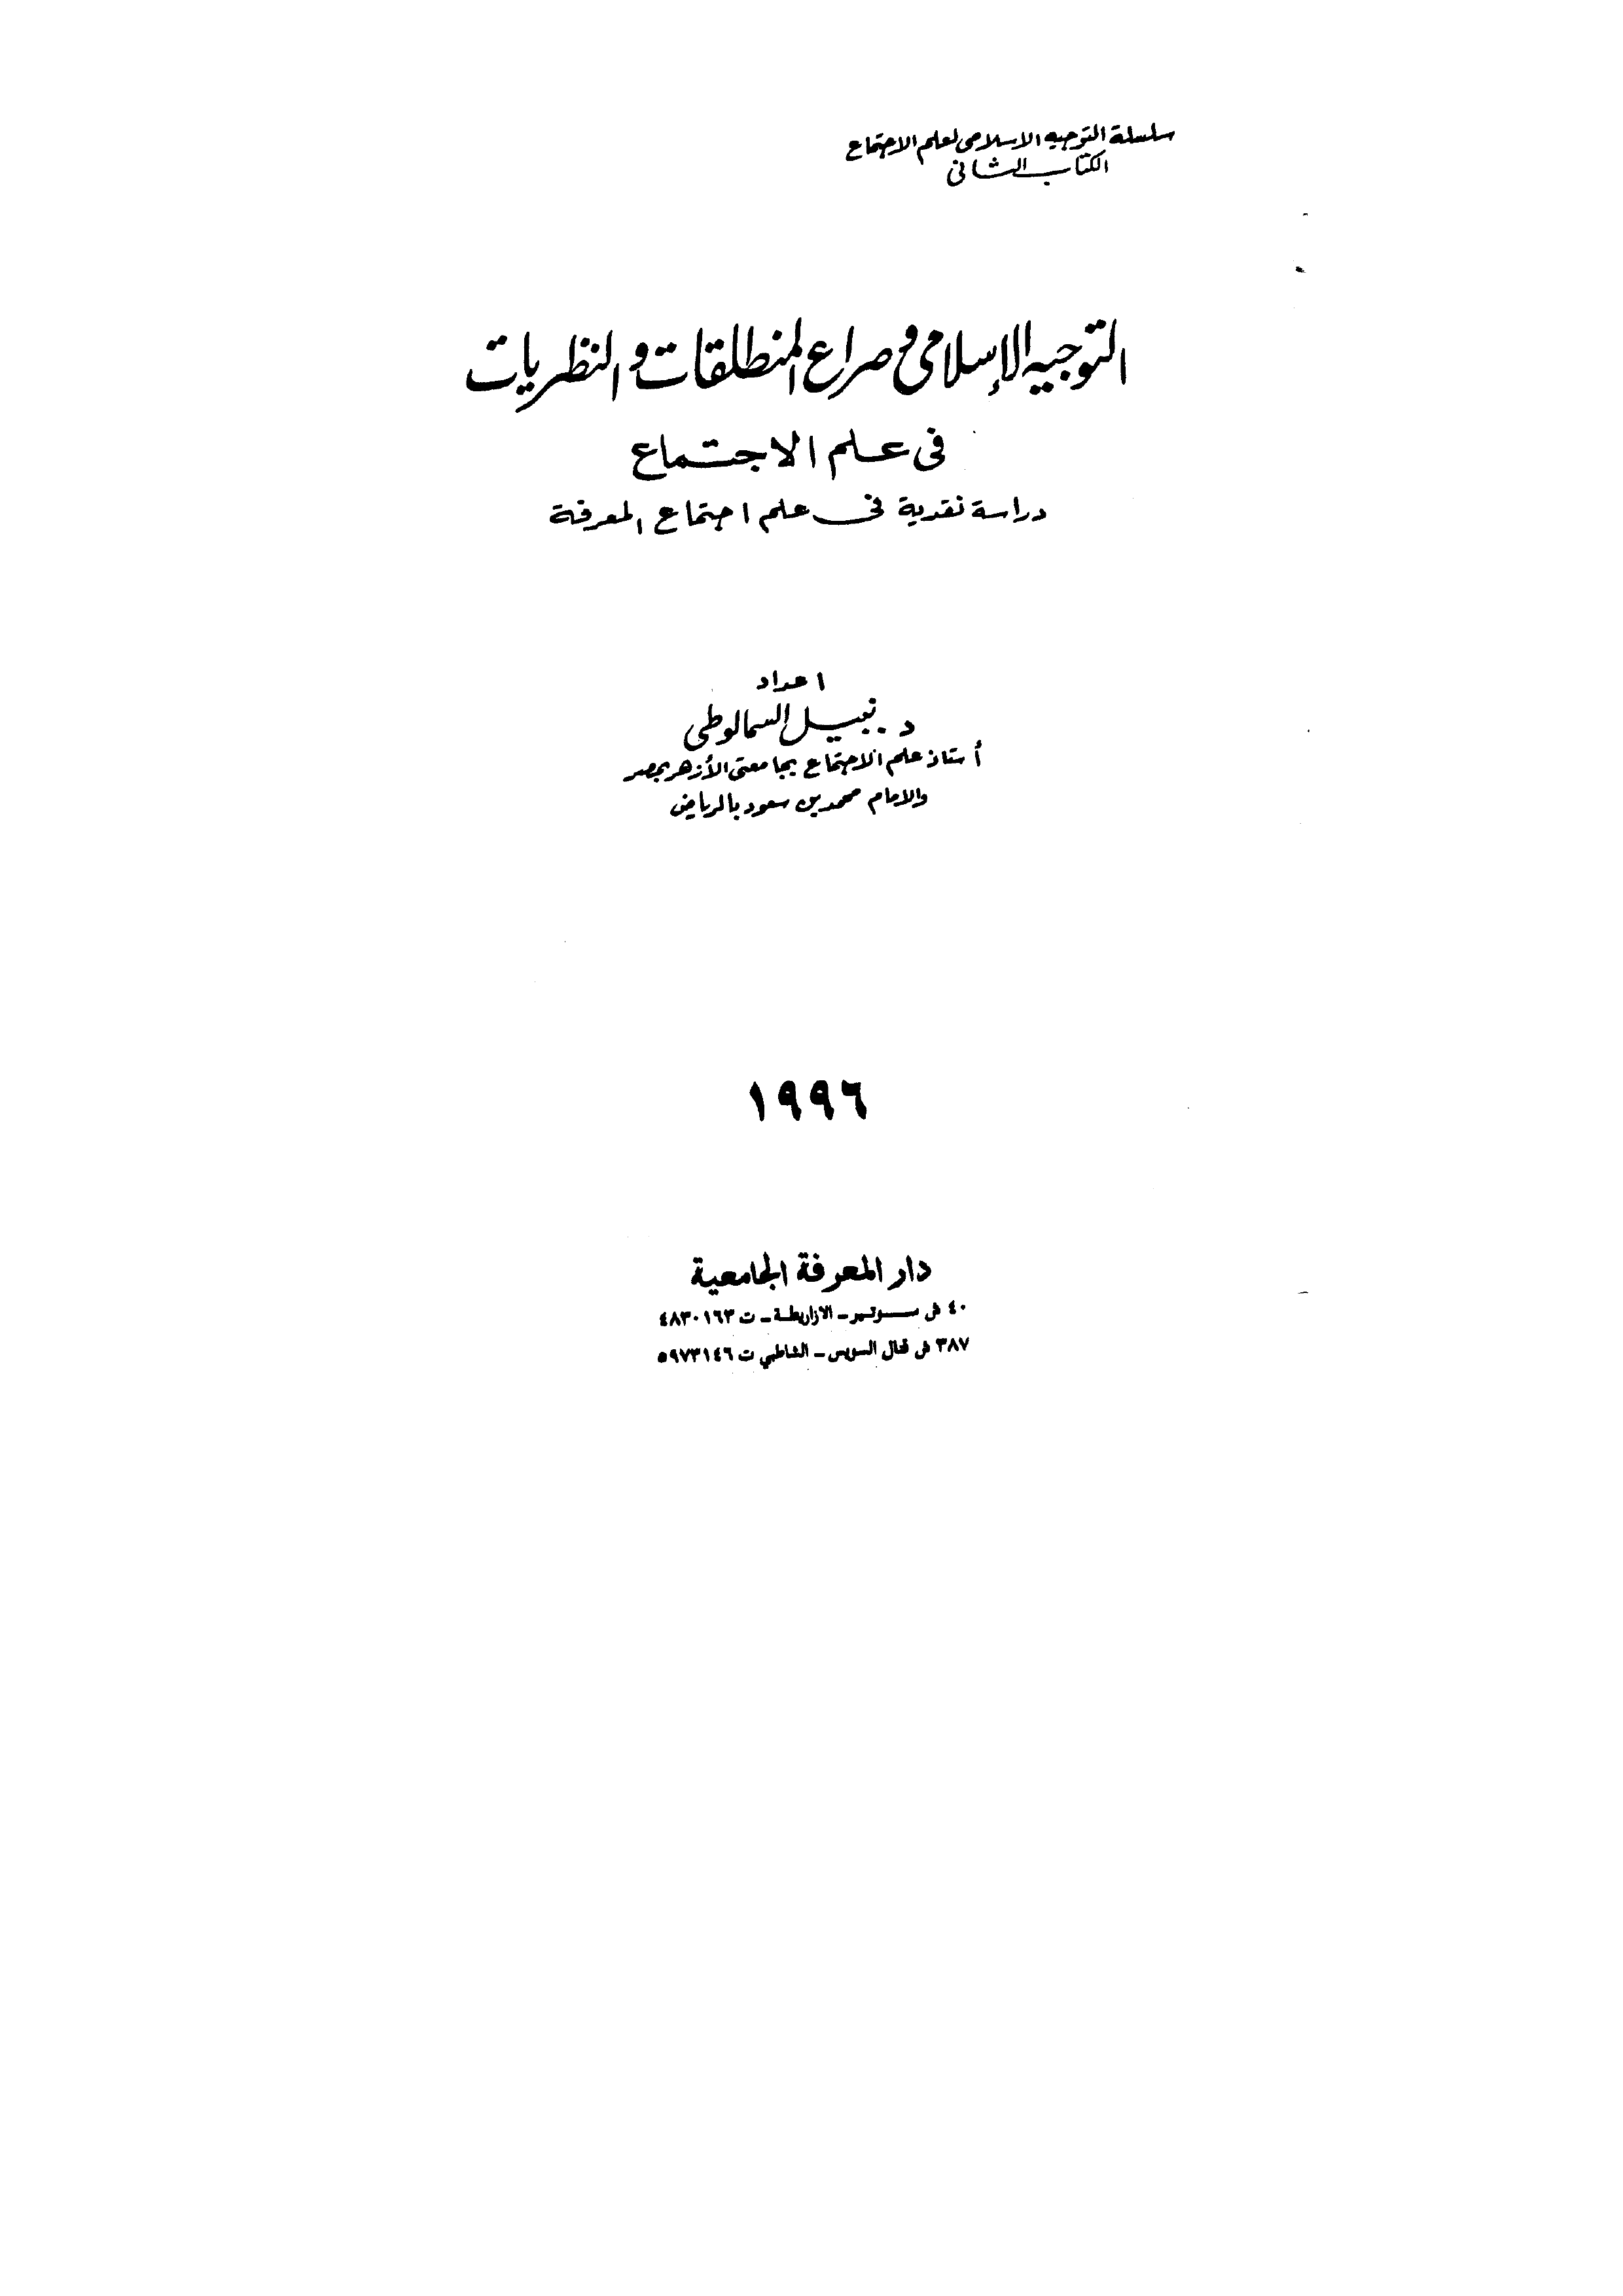 سلسلة التوجيه الاسلامى لعلم الاجتماع
الكتاب الثانى
التوجيه الإسلامى وصراع المنطلقات والنظريات
فى علم الاجتماع
دراسة نقدية فى علم اجتماع المعرفة
اعداد
د. نبيل السمالوطى
أستاذ علم الاجتماع بجامعتى الأزهر بمصر
والامام محمد بن سعود بالرياض
١٩٩٦
دار المعرفة الجامعية
٤٠ ش سوتير - الازاريطة - ت ٤٨٣٠١٦٣
٣٨٧ ش قنال السويس - الشاطبي ت ٥٩٧٣١٤٦